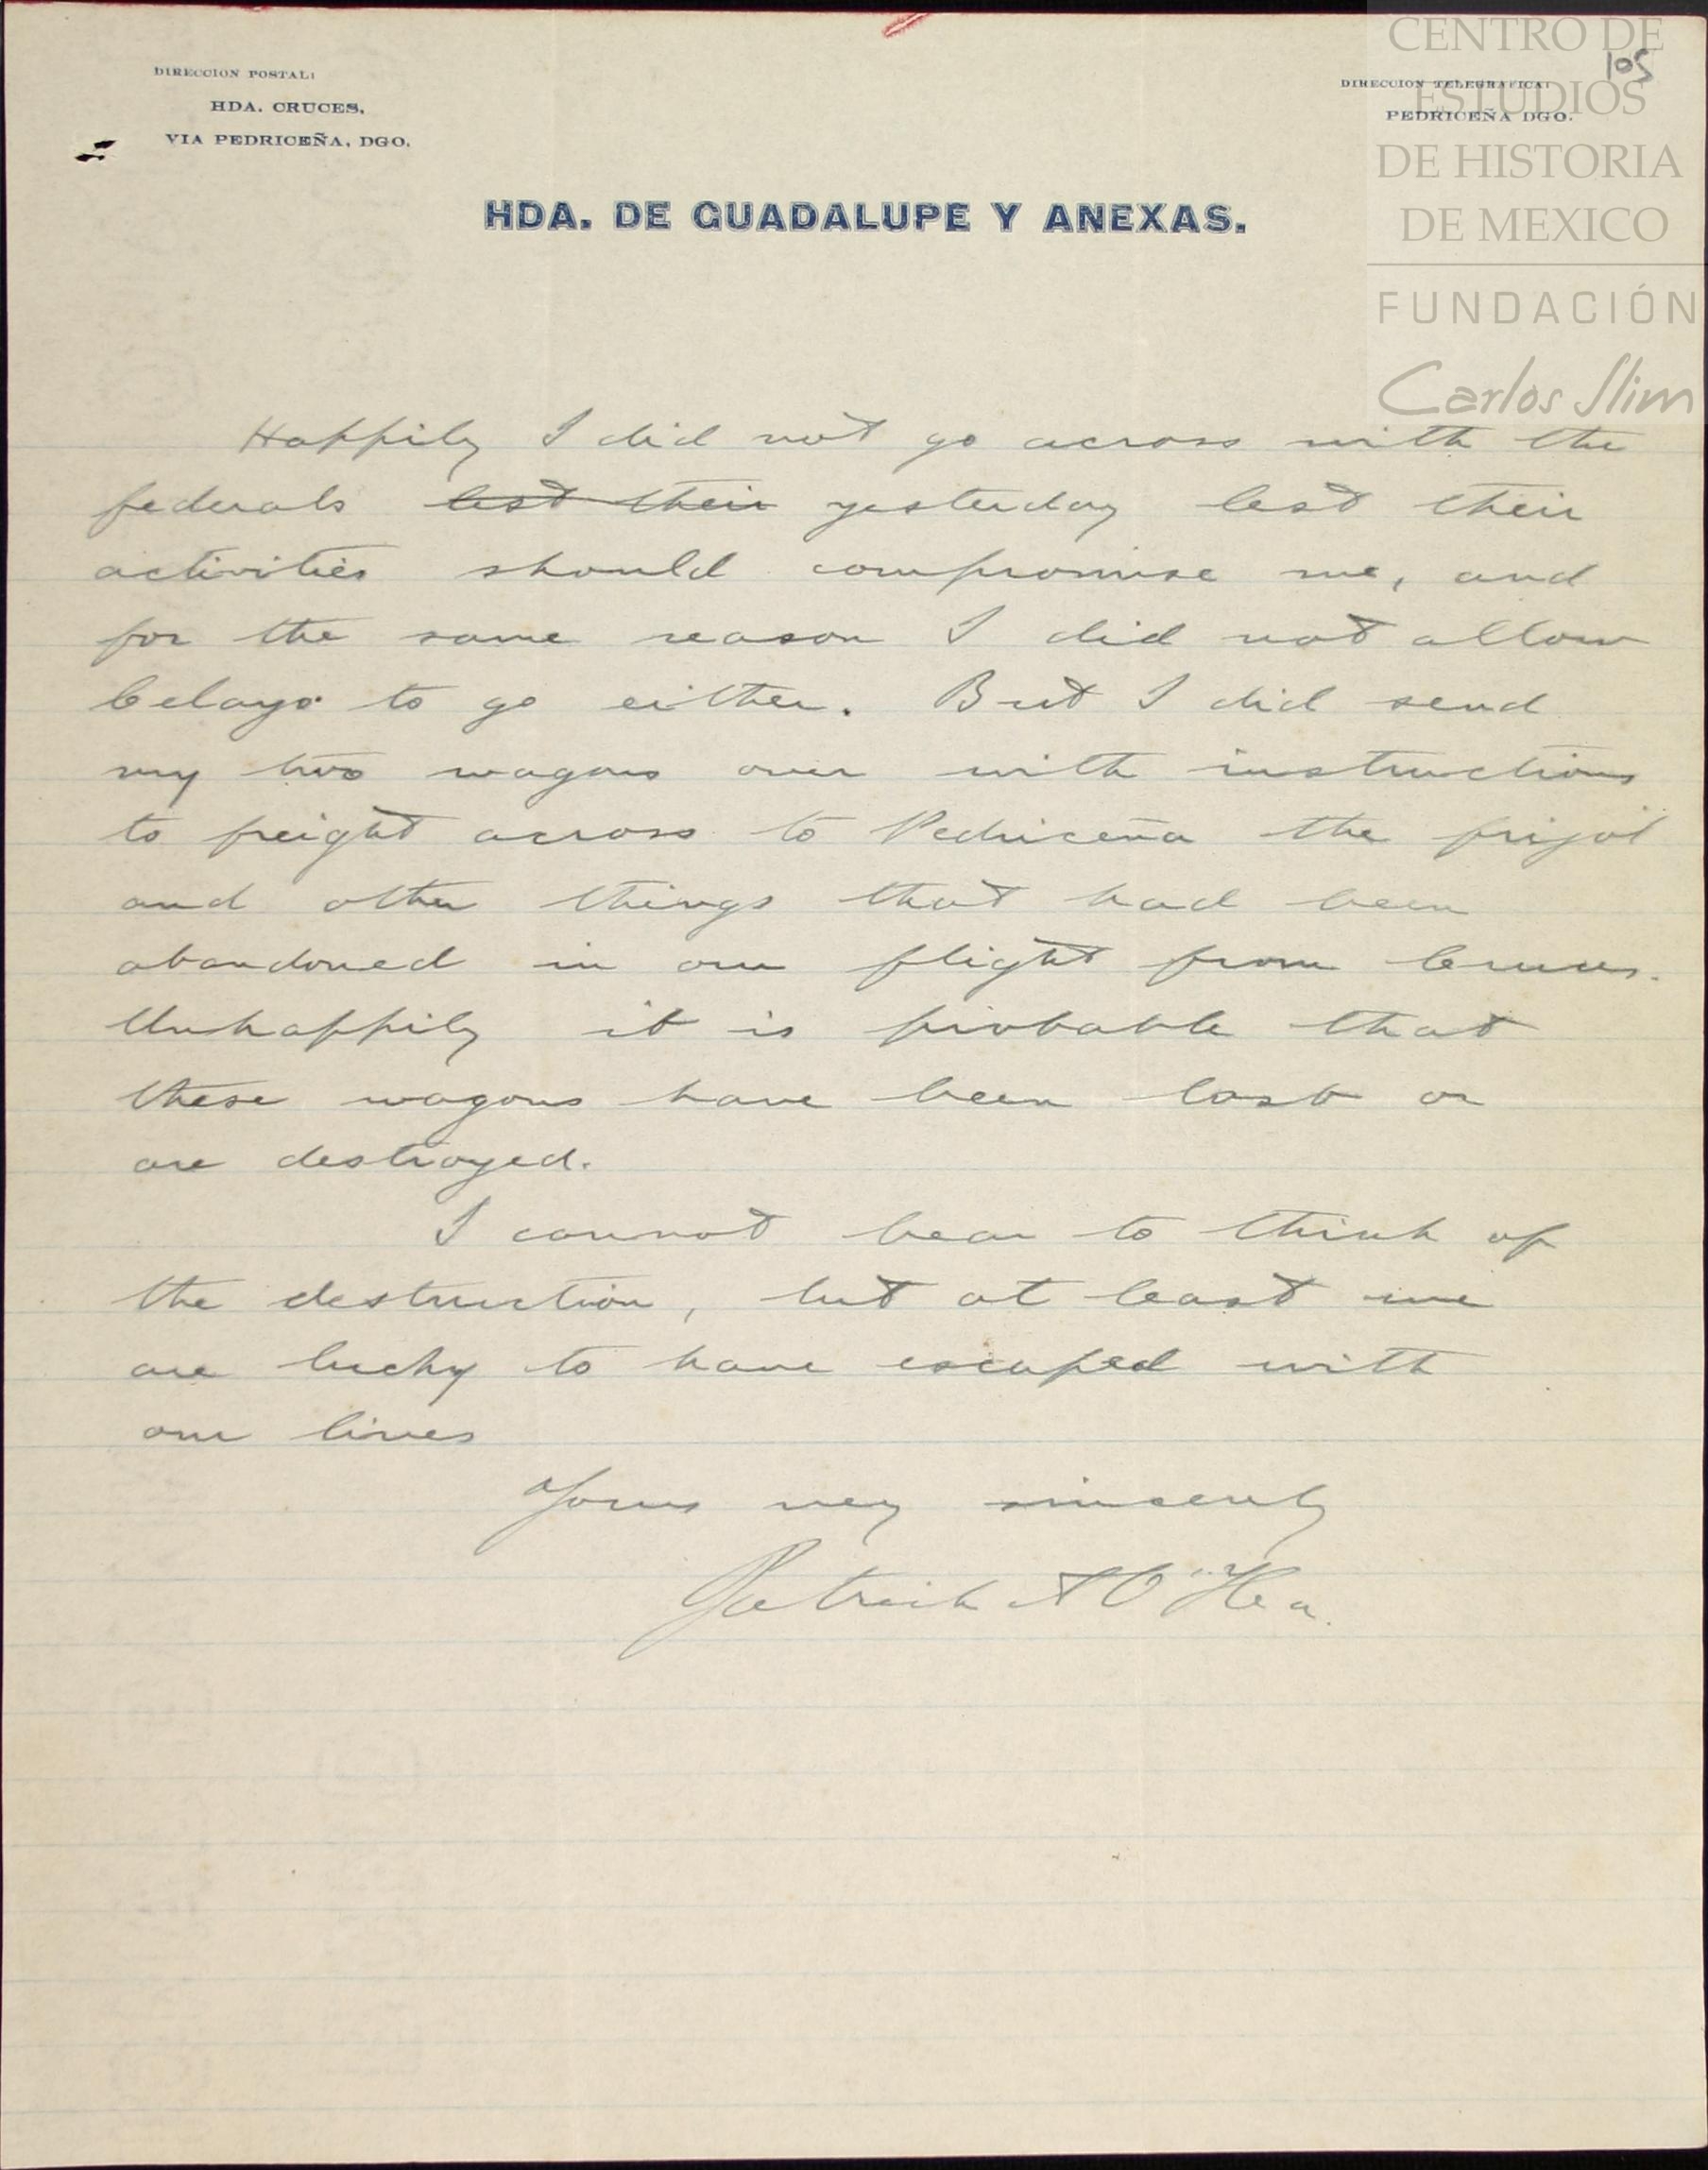 CENTRO DE
ESTUDIOS
DE HISTORIA
DE MEXICO
FUNDACIÓN
Carlos Slim
105
DIRECCION POSTAL:
HDA. CRUCES,
VIA PEDRICEÑA, DGO.
DIRECCION TELEGRAFICA:
PEDRICEÑA DGO.
HDA. DE GUADALUPE Y ANEXAS.
Happily I did not go across with the
federals lest their yesterday lest their
activities should compromise me, and
for the same reason I did not allow
to go either. But I did send
my two wagons over with instructions
to freight across to Pedriceña the frijol
and other things that had been
abandoned in our flight from Cruces.
Unhappily it is probable that
these wagons have been lost or
are destroyed.
I cannot bear to think of
the destruction, but at least we
are lucky to have escaped with
our lives
Yours very sincerely
Patrick A O'Hea.